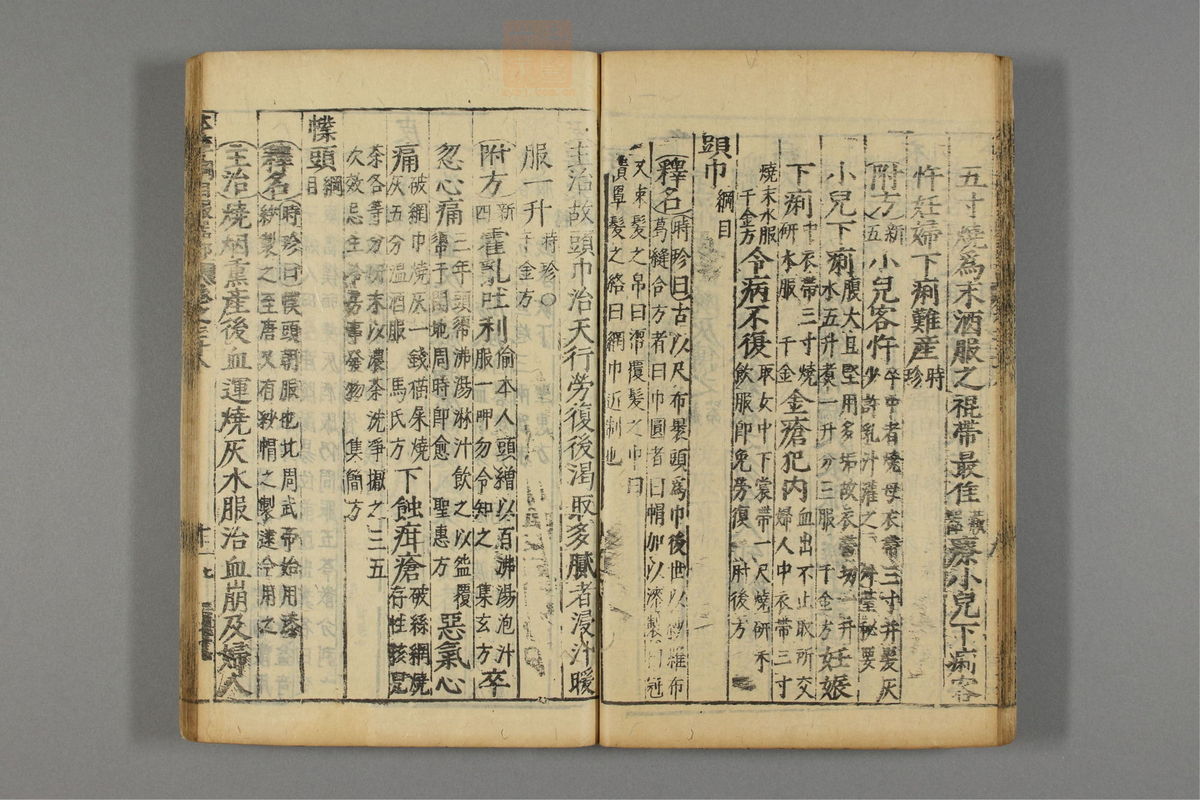 五寸燒爲末酒服之裩帶最佳藏器療小兒下痢客
忤妊婦下痢難産時珍
附方新五小兒客忤卒中者燒母衣帶三寸并髮灰
少許乳汁灌之外臺秘要
小兒下痢腹大且堅用多垢故衣帶切一升
水五升煮一升分三服千金方妊娠
下痢中衣帶三寸燒
研水服 千金金瘡犯内血出不止取所交
婦人中衣帶三寸
燒末水服
千金方令病不復取女中下裳帶一尺燒研米
飲服即免勞復 肘後方
頭巾綱目
釋名時珍曰古以尺布裹頭爲巾後世以紗羅布
葛縫合方者曰巾圓者曰帽加以漆製曰冠
又束髮之帛曰㡋覆髮之巾曰
幘罩髮之絡曰網巾近制也
主治故頭巾治天行勞復後渴取多膩者浸汁暖
服一升時珍○
千金方
附方新四霍乳吐利偷本人頭繒以百沸湯泡汁
服一呷勿令知之 集玄方卒
忽心痛三年頭㡌沸湯淋汁飲之以盌覆
𨶑于閑地周時即愈 聖惠方惡氣心
痛破網巾燒灰一錢猫屎燒
灰五分温酒服 馬氏方下蝕疳瘡破絲網燒
存性孩兒
茶各等分研末以濃茶洗淨摻之三五
次效忌生冷房事發物 集簡方
幞頭綱目
釋名時珍曰幞頭朝服也北周武帝始用漆
紗製之至唐又有紗帽之製逮今用之
主治燒烟熏産後血運燒灰水服治血崩及婦人